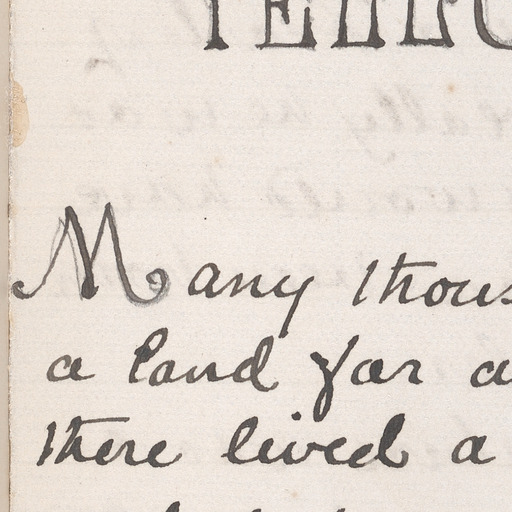 Many thous
a land far a
there lived a